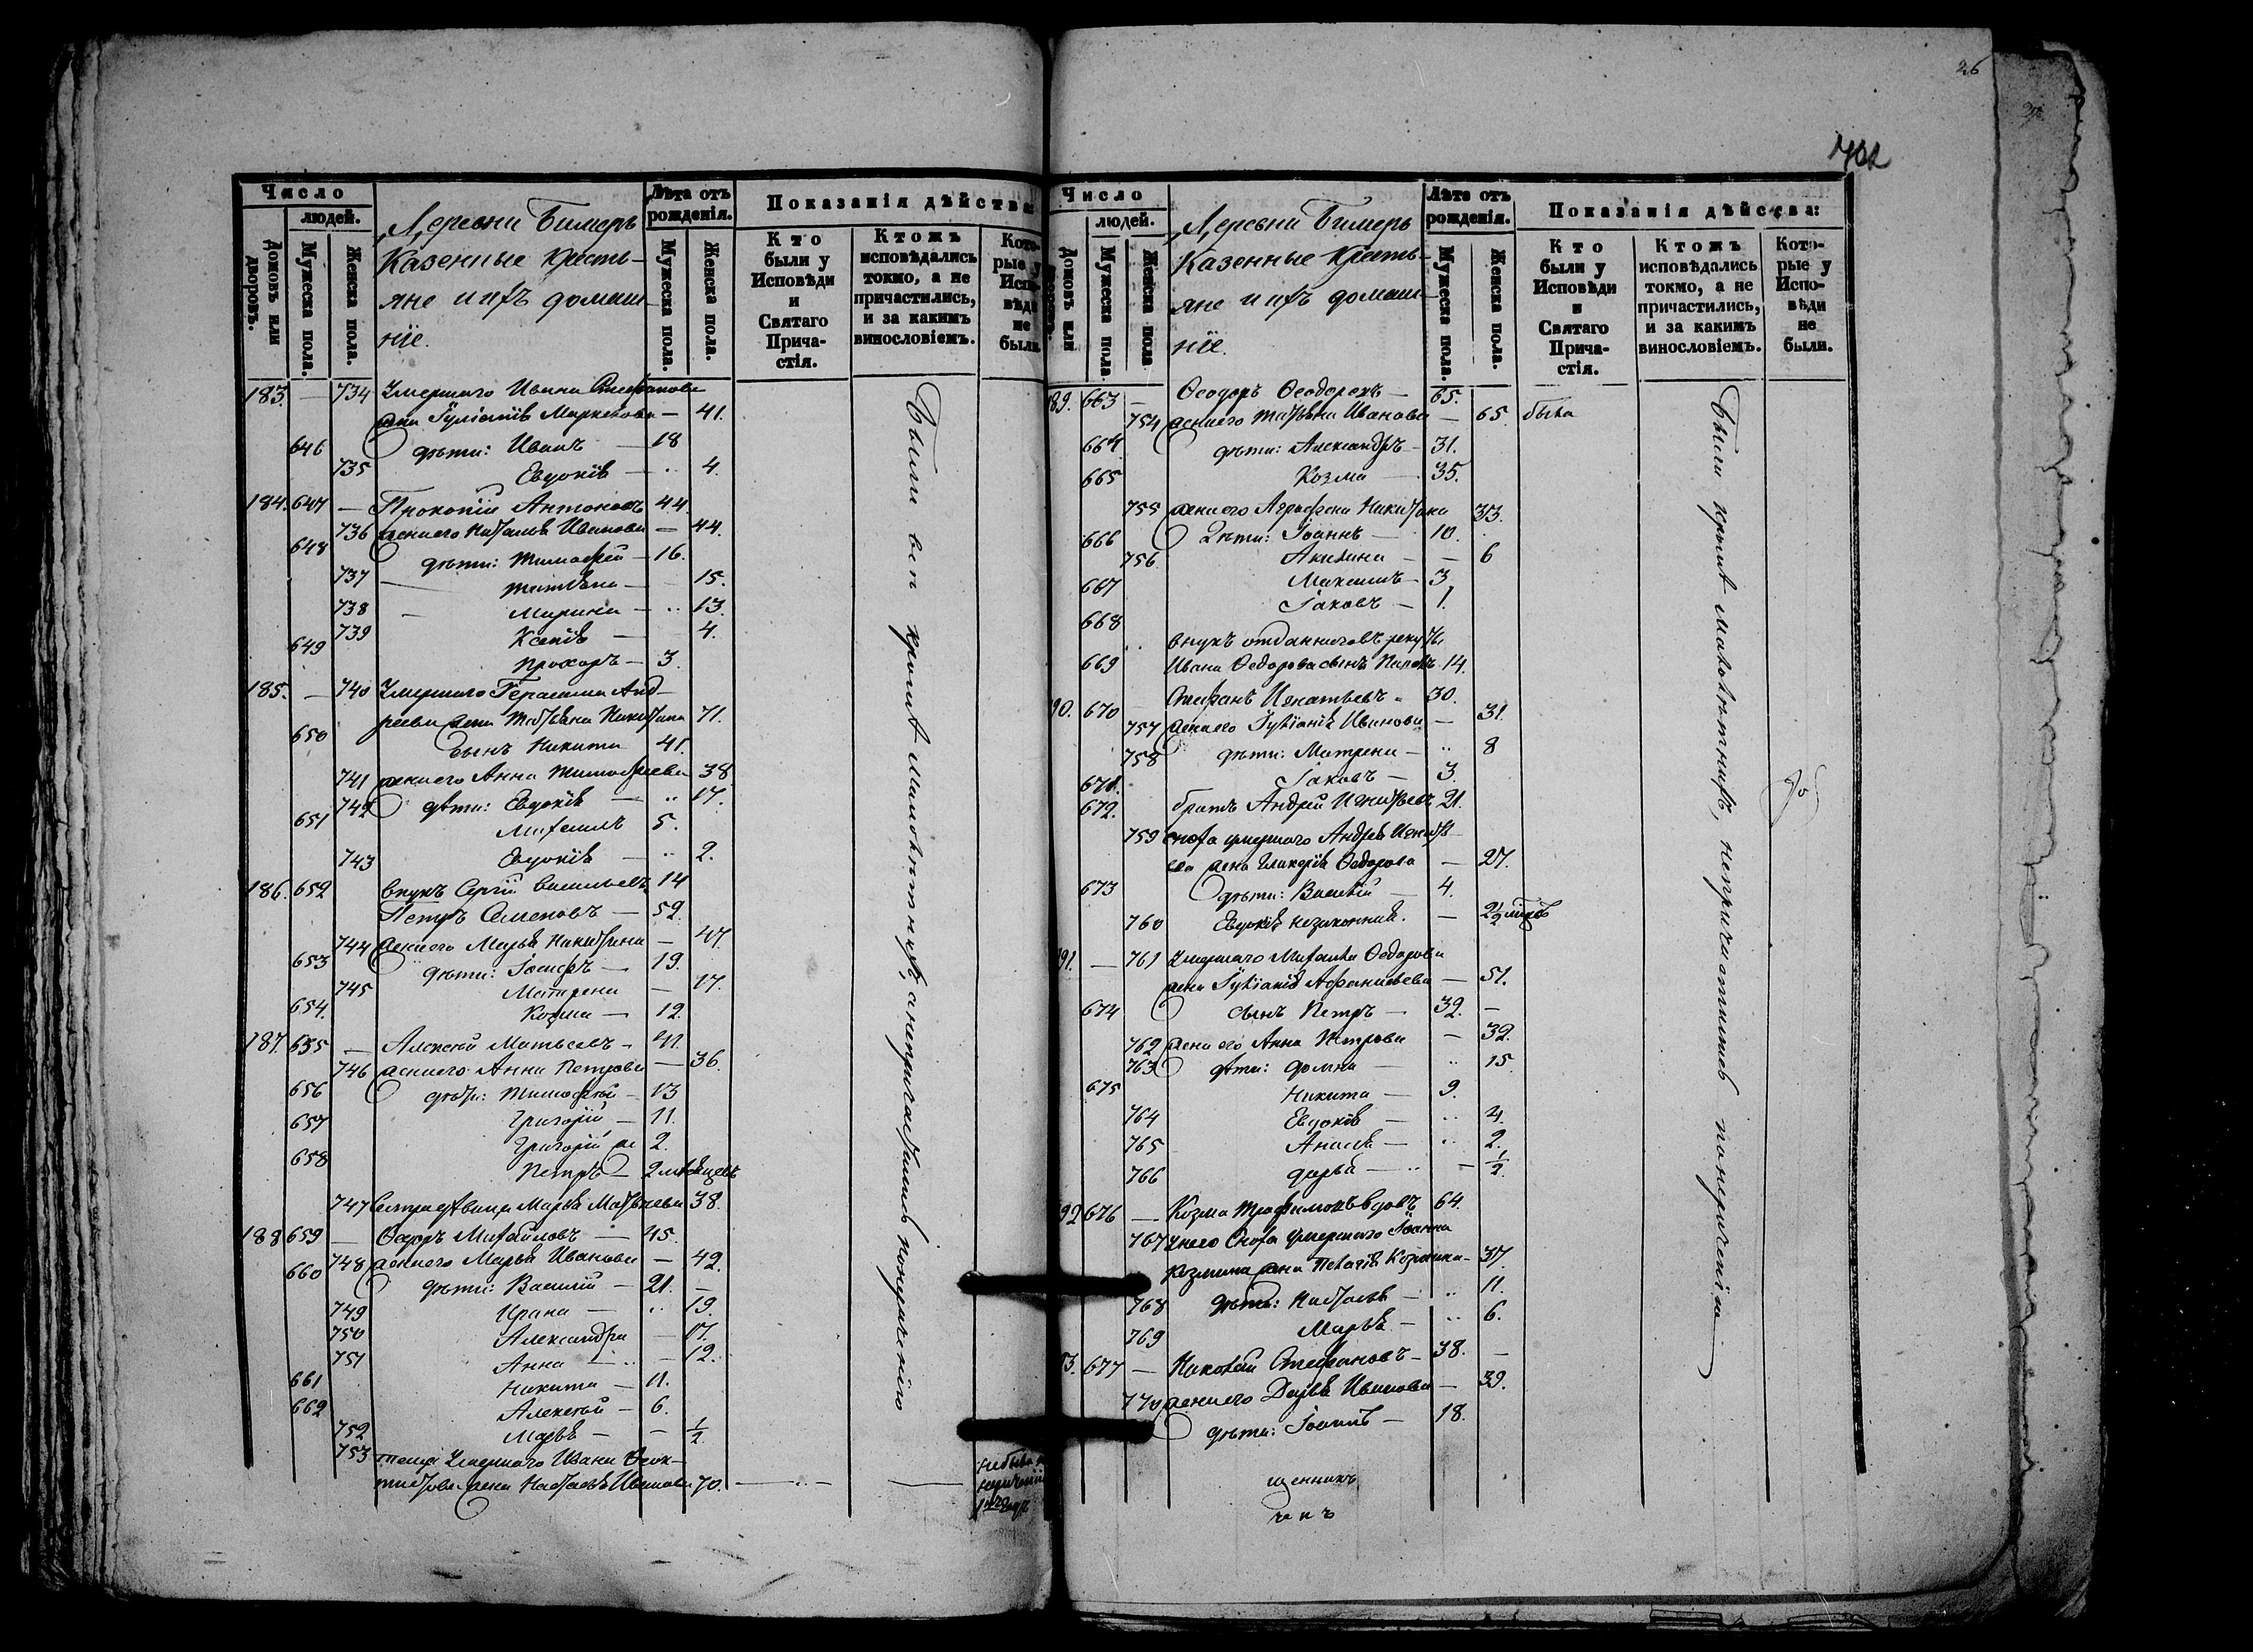 26
702
Число
людей.
Домовъ или дворовъ.
Мужеска пола.
Женска пола.
Деревни Бимеръ
Казенные кресть-
яне и ихъ домаш-
ніе.
Лѣта отъ рожденія.
Мужеска пола.
Женска пола.
Показанія дѣйства
Кто были у Исповѣди и Святаго Прича-стія.
Ктожъ исповѣдались токмо, а не причастились, и за какимъ винословіемъ.
Кото-рые у Испо-вѣди не были.
183. — 734 Умершаго Ивана Стефанова
жена Іуліанія Маркелова — 41.
646 дѣти: Иванъ — 18
735 Евдокія — .. 4.
184. 647 — Прокопій Антоновъ 44.
736 жена его Наталья Иванова — 44.
648 дѣти: Тимофей — 16.
737 — Татьяна — 15.
738 — Марина — .. 13.
739 Ксенія — 4.
649 Прохоръ — 3.
185. — 740 Умершаго Герасима Анд-
реева жена Татьяна Никитина 71.
650 сынъ Никита 41.
741 жена его Анна Тимофеева 38
742 дѣти: Евдокія — .. 17.
651 Михаилъ 5.
743 Евдокія — .. 2.
186. 652 внукъ Сергій Васильевъ 14
Петръ Семеновъ — 52.
744 жена его Марья Никитина — 47
653 дѣти: Іосифъ — 19.
745 Матрена — 17.
654. Козма — 12.
187. 655 — Алексѣй Матвеевъ — 41.
746 жена его Анна Петрова — 36.
656 дѣти: Тимофей — 13
657 Григорій — 11.
Григорій же 2.
658 Петръ — 2 мѣсяцевъ
747 Сестра Марья Матвеева 38.
188 659 — Ѳедоръ Михайловъ — 45.
748 жена его Марья Иванова — 42.
660 дѣти: Василій — 21. —
749 Ирина — .. 19.
750 Александра — 17.
751 Анна — .. — 12.
661 Никита — 11.
662 Алексѣй — 6.
752 Марья — — 1/2
753 теща Умершаго Ивана Ѳеок-
тистова жена Наталья Иванова 70.
Были вси кромѣ малолѣтнихъ, а непричастились по нерадѣнію
Не была по
1й годъ
Число
людей.
Домовъ или дворовъ.
Мужеска пола.
Женска пола
Деревни Бимеръ
Казенные кресть-
яне и ихъ домаш-
ніе.
Лѣта отъ рожденія.
Мужеска пола.
Женска пола.
Показанія дѣйства:
Кто были у Исповѣди и Святаго Прича-стія.
Ктожъ исповѣдались токмо, а не причастились, и за какимъ винословіемъ.
Кото-рые у Испо-вѣди не были.
89. 663 — Ѳеодоръ Ѳеодоровъ — 65.
754 жена его Татьяна Иванова — 65. была
664 дѣти: Александръ — 31.
665 Козма — 35.
755 жена его Аграфена Никитина 33.
666 Дѣти: Іоаннъ — 10.
756 Акилина — — 6
667 Максимъ — 3
668 Іаковъ — 1.
внукъ отданнаго въ рекруты
669 Ивана Ѳедорова сынъ Павелъ 14.
90. 670 Стефанъ Игнатьевъ — 30.
757 жена его Іуліанія Иванова — 31.
758 дѣти: Матрена — .. 8
671. Іаковъ — 3.
672. братъ Андрей Игнатьевъ 21.
759 сноха умершаго Андрея Игнать-
ева жена Гликерія Ѳедорова — 27.
673 дѣти: Василій — 4.
760 Евдокія незаконная. — 2 1/2
91. — 761 Умершаго Михаила Ѳедорова
жена Іуліанія Афанасьева — 51.
674 сынъ Петръ — 32. —
762 жена его Анна Петрова — 32.
763 дѣти: Домна — .. 15
675 Никита — 9.
764 Евдокія — .. 4.
765 — .. 2.
766 Дарья — .. — 1/2
92 676 — Козма Трофимовъ вдовъ 64.
767 у него Сноха умершаго Іоанна
Козмина жена Пелагія Козмина — 37.
768 дѣти: Наталья — .. 11.
769 Марья — .. 6.
93. 677 — Николай Стефановъ — 38. —
770 жена его Дарья Иванова — 39.
дѣти: Іоаннъ — 18.
Были кромѣ малолѣтнихъ, непричастились по нерадѣнію
щенникъ